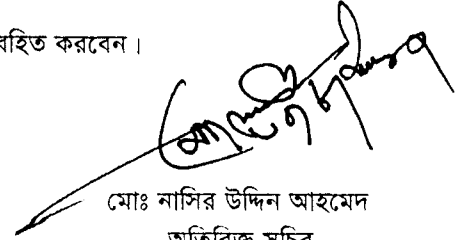 বহিত করবেন।
মোঃ নাসির উদ্দিন আহমেদ
অতিরিক্ত সচিব